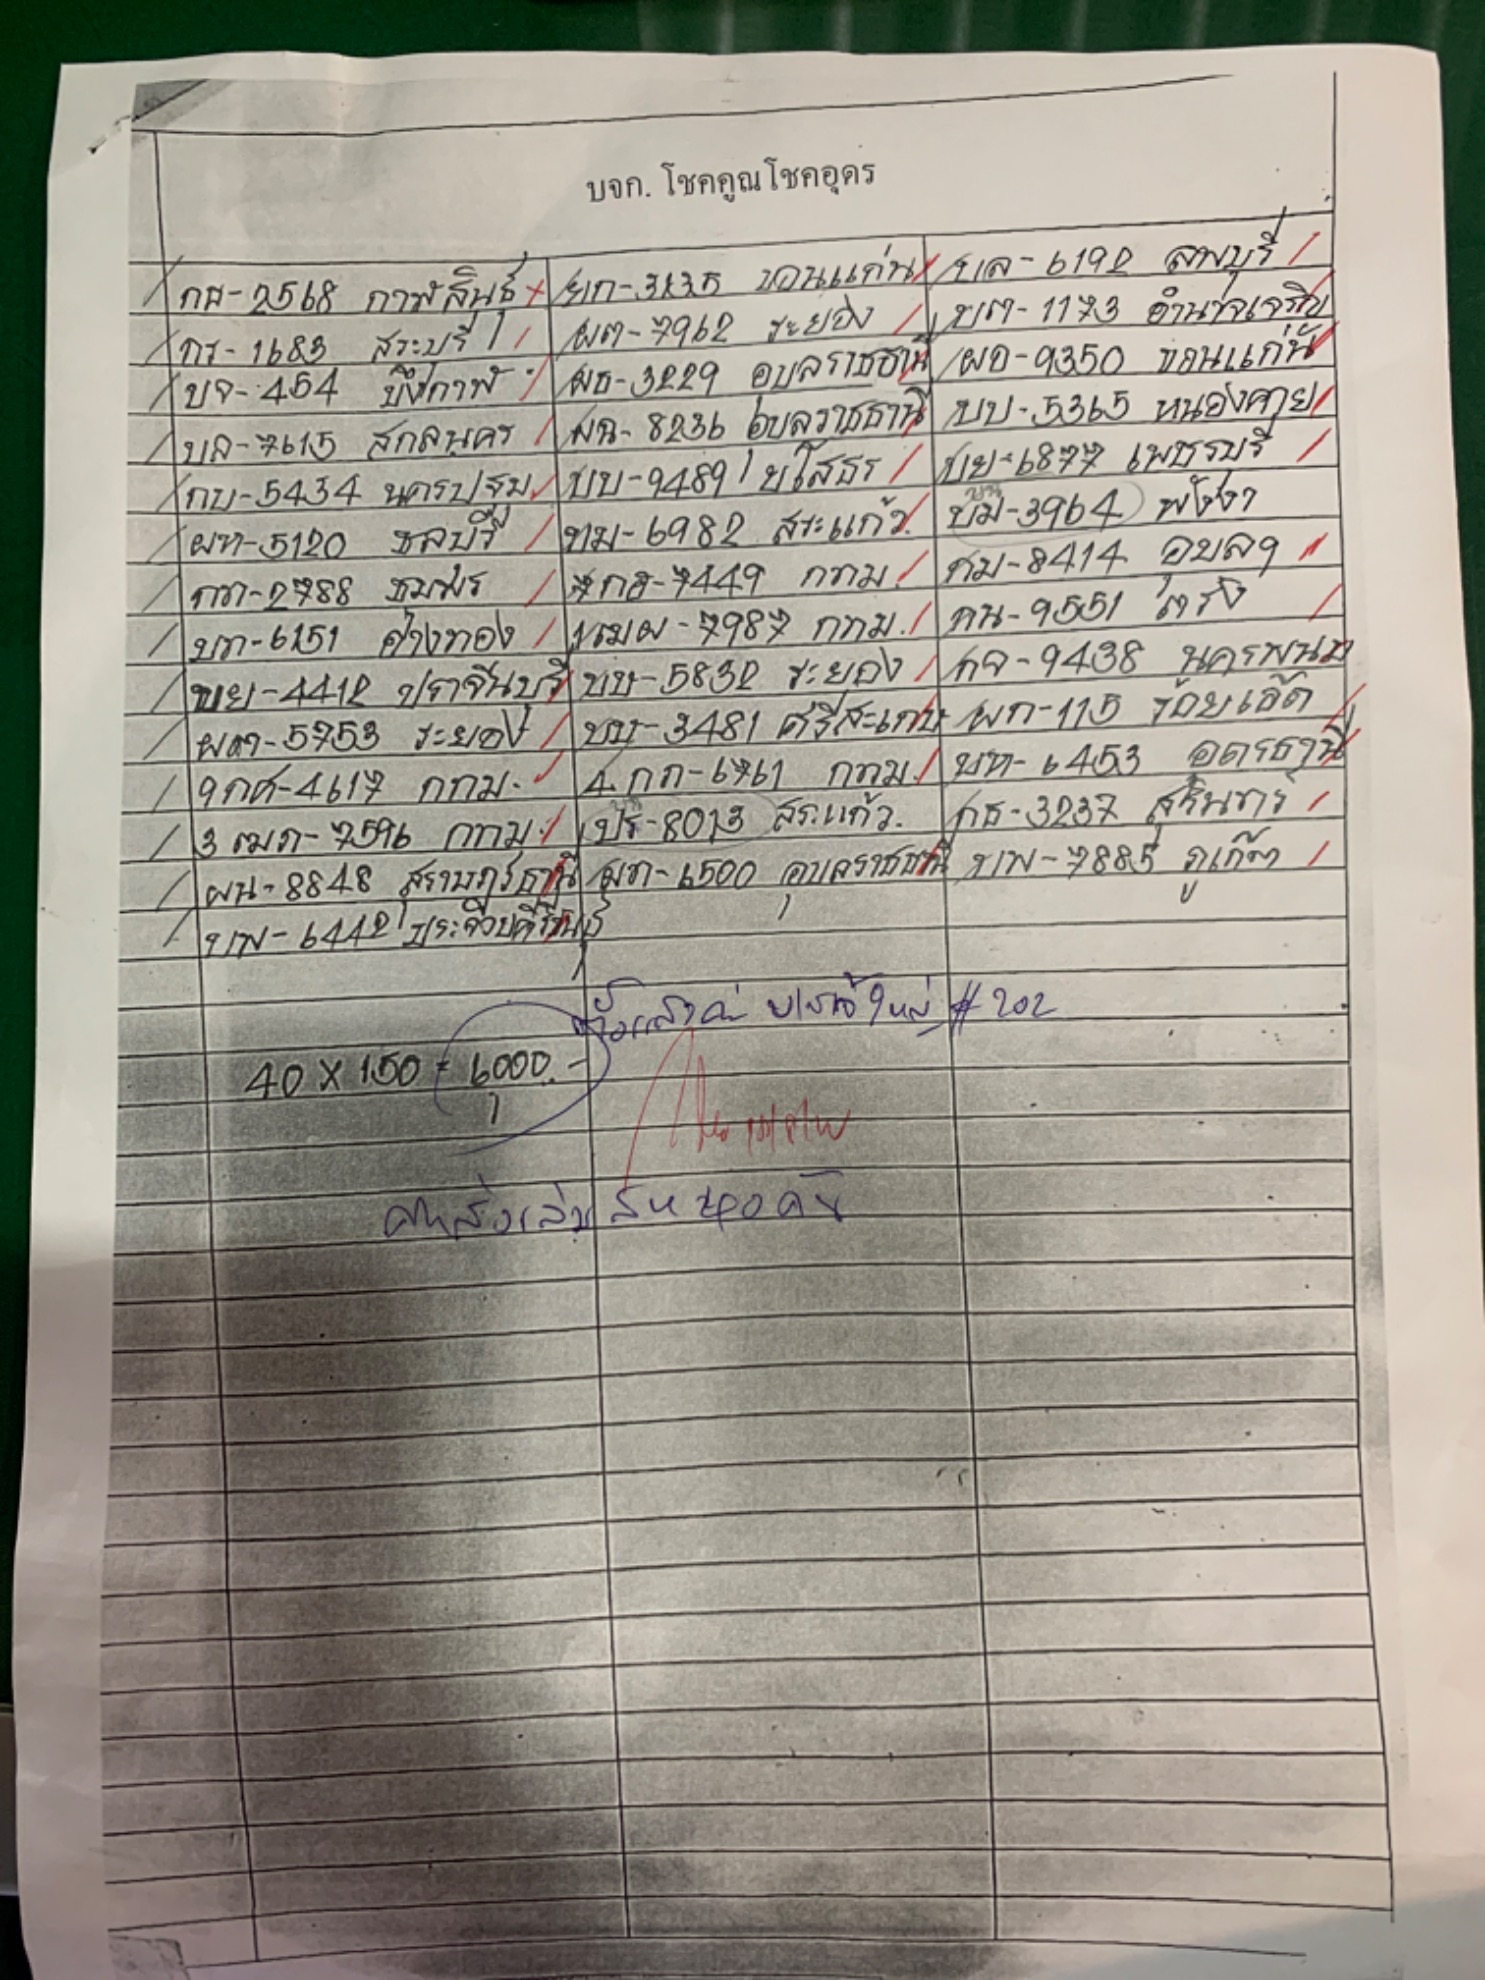 บจก. โชคคูณโชคอุดร
กส-2568 กาฬสินธุ์ ยก-3235 ขอนแก่น ขล-6192 ลพบุรี
กร-1683 สระบุรี ผต-7962 ระยอง บต-1173 อำนาจเจริญ
บจ-454 บึงกาฬ ผธ-3229 อุบลราชธานี ผอ-9350 ขอนแก่น
บล-7615 สกลนคร ผฉ-8236 อุบลราชธานี บบ-5365 หนองคาย
กบ-5434 นครปฐม บบ-9489 ยโสธร ขย-6877 เพชรบุรี
ผท-5120 ชลบุรี กม-6982 สระแก้ว. บม-3964 พังงา
กต-2788 ชุมพร 7กฮ-7449 กทม. กม-8414 อุบลฯ
บก-6151 อ่างทอง 1ฒผ-7987 กทม. กน-9551 ตรัง
ขย-4412 ปราจีนบุรี ขษ-5832 ระยอง กจ-9438 นครพนม
ผต-5753 ระยอง ขบ-3481 ศรีสะเกษ ผก-115 ร้อยเอ็ด
9กศ-4617 กทม. 4กก-6761 กทม. ขท-6453 อุดรธานี
3ฒภ-7596 กทม. ปร-8013 สระแก้ว. กธ-3237 สุรินทร์
ผน-8848 สุราษฎร์ธานี ผก-6500 อุบลราชธานี ขพ-7885 ภูเก็ต
ขพ-6442 ประจวบคีรีขันธ์
#202
40 x 150 = 6000.-